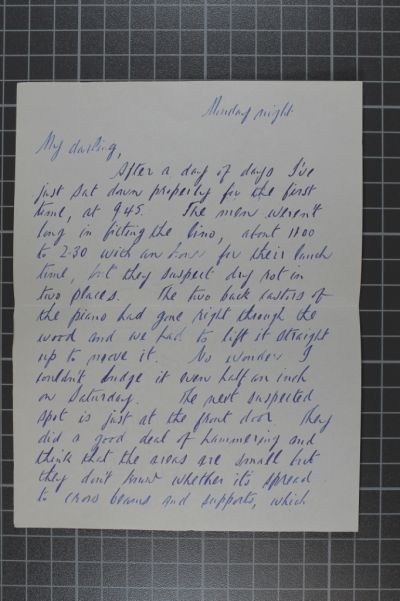 Monday night.
My darling,
After a day of days I've
just sat down properly for the first
time, at 9.45. The men weren't
long in fitting the lino, about 11.00
to 2.30 with an hour for their lunch
time, but they suspect dry rot in
two places. The two back castors of
the piano had gone right through the
wood and we had to lift it straight
up to move it. No wonder I
couldn't budge it even half an inch
on Saturday. The next suspected
spot is just at the front door. They
did a good deal of hammering and
think that the areas are small but
they don't know whether it's spread
to cross beams and supports, which